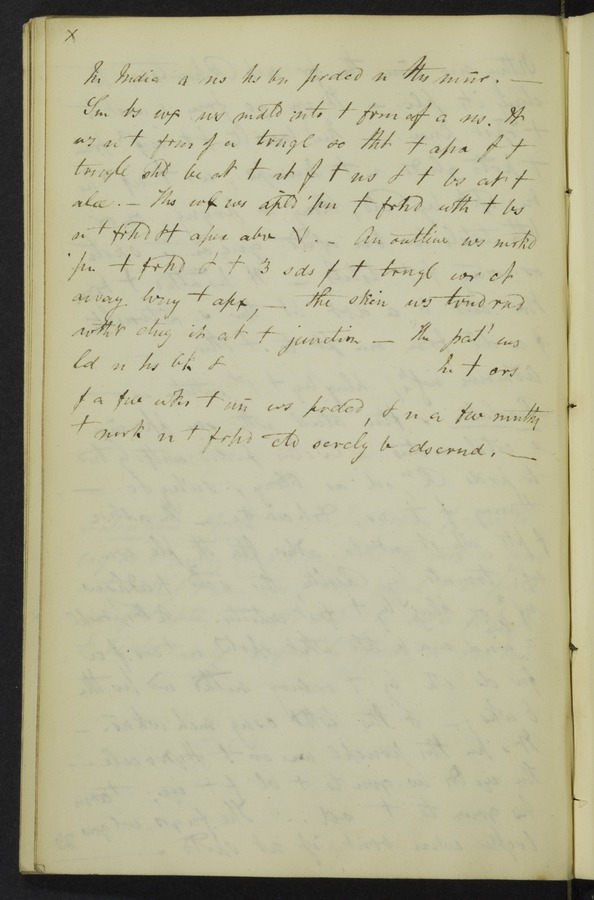 X
In India a ns hs bn prdcd n ths mnr. —
Sm bs wx ws mdld into t form of a ns. It
ws n t form of a trngl so tht t apx of t
trngle shd be at t rt f t ns & t bs at t
alæ. — Ths wx ws apld 'pn t frhd with t bs
n t frhd & t apx abv V. — An outline ws mrkd
'pn t frhd & t 3 sds f t trngl wr ct
away lvng t apx, — the skin ws trnd rnd
with'r dtng it at t junction — The pat' ws
ld n hs bk & In t crs
f a fw wks t un ws prdcd, & n a few mnths
t mrk n t frhd cld scrcly b dscrnd. —